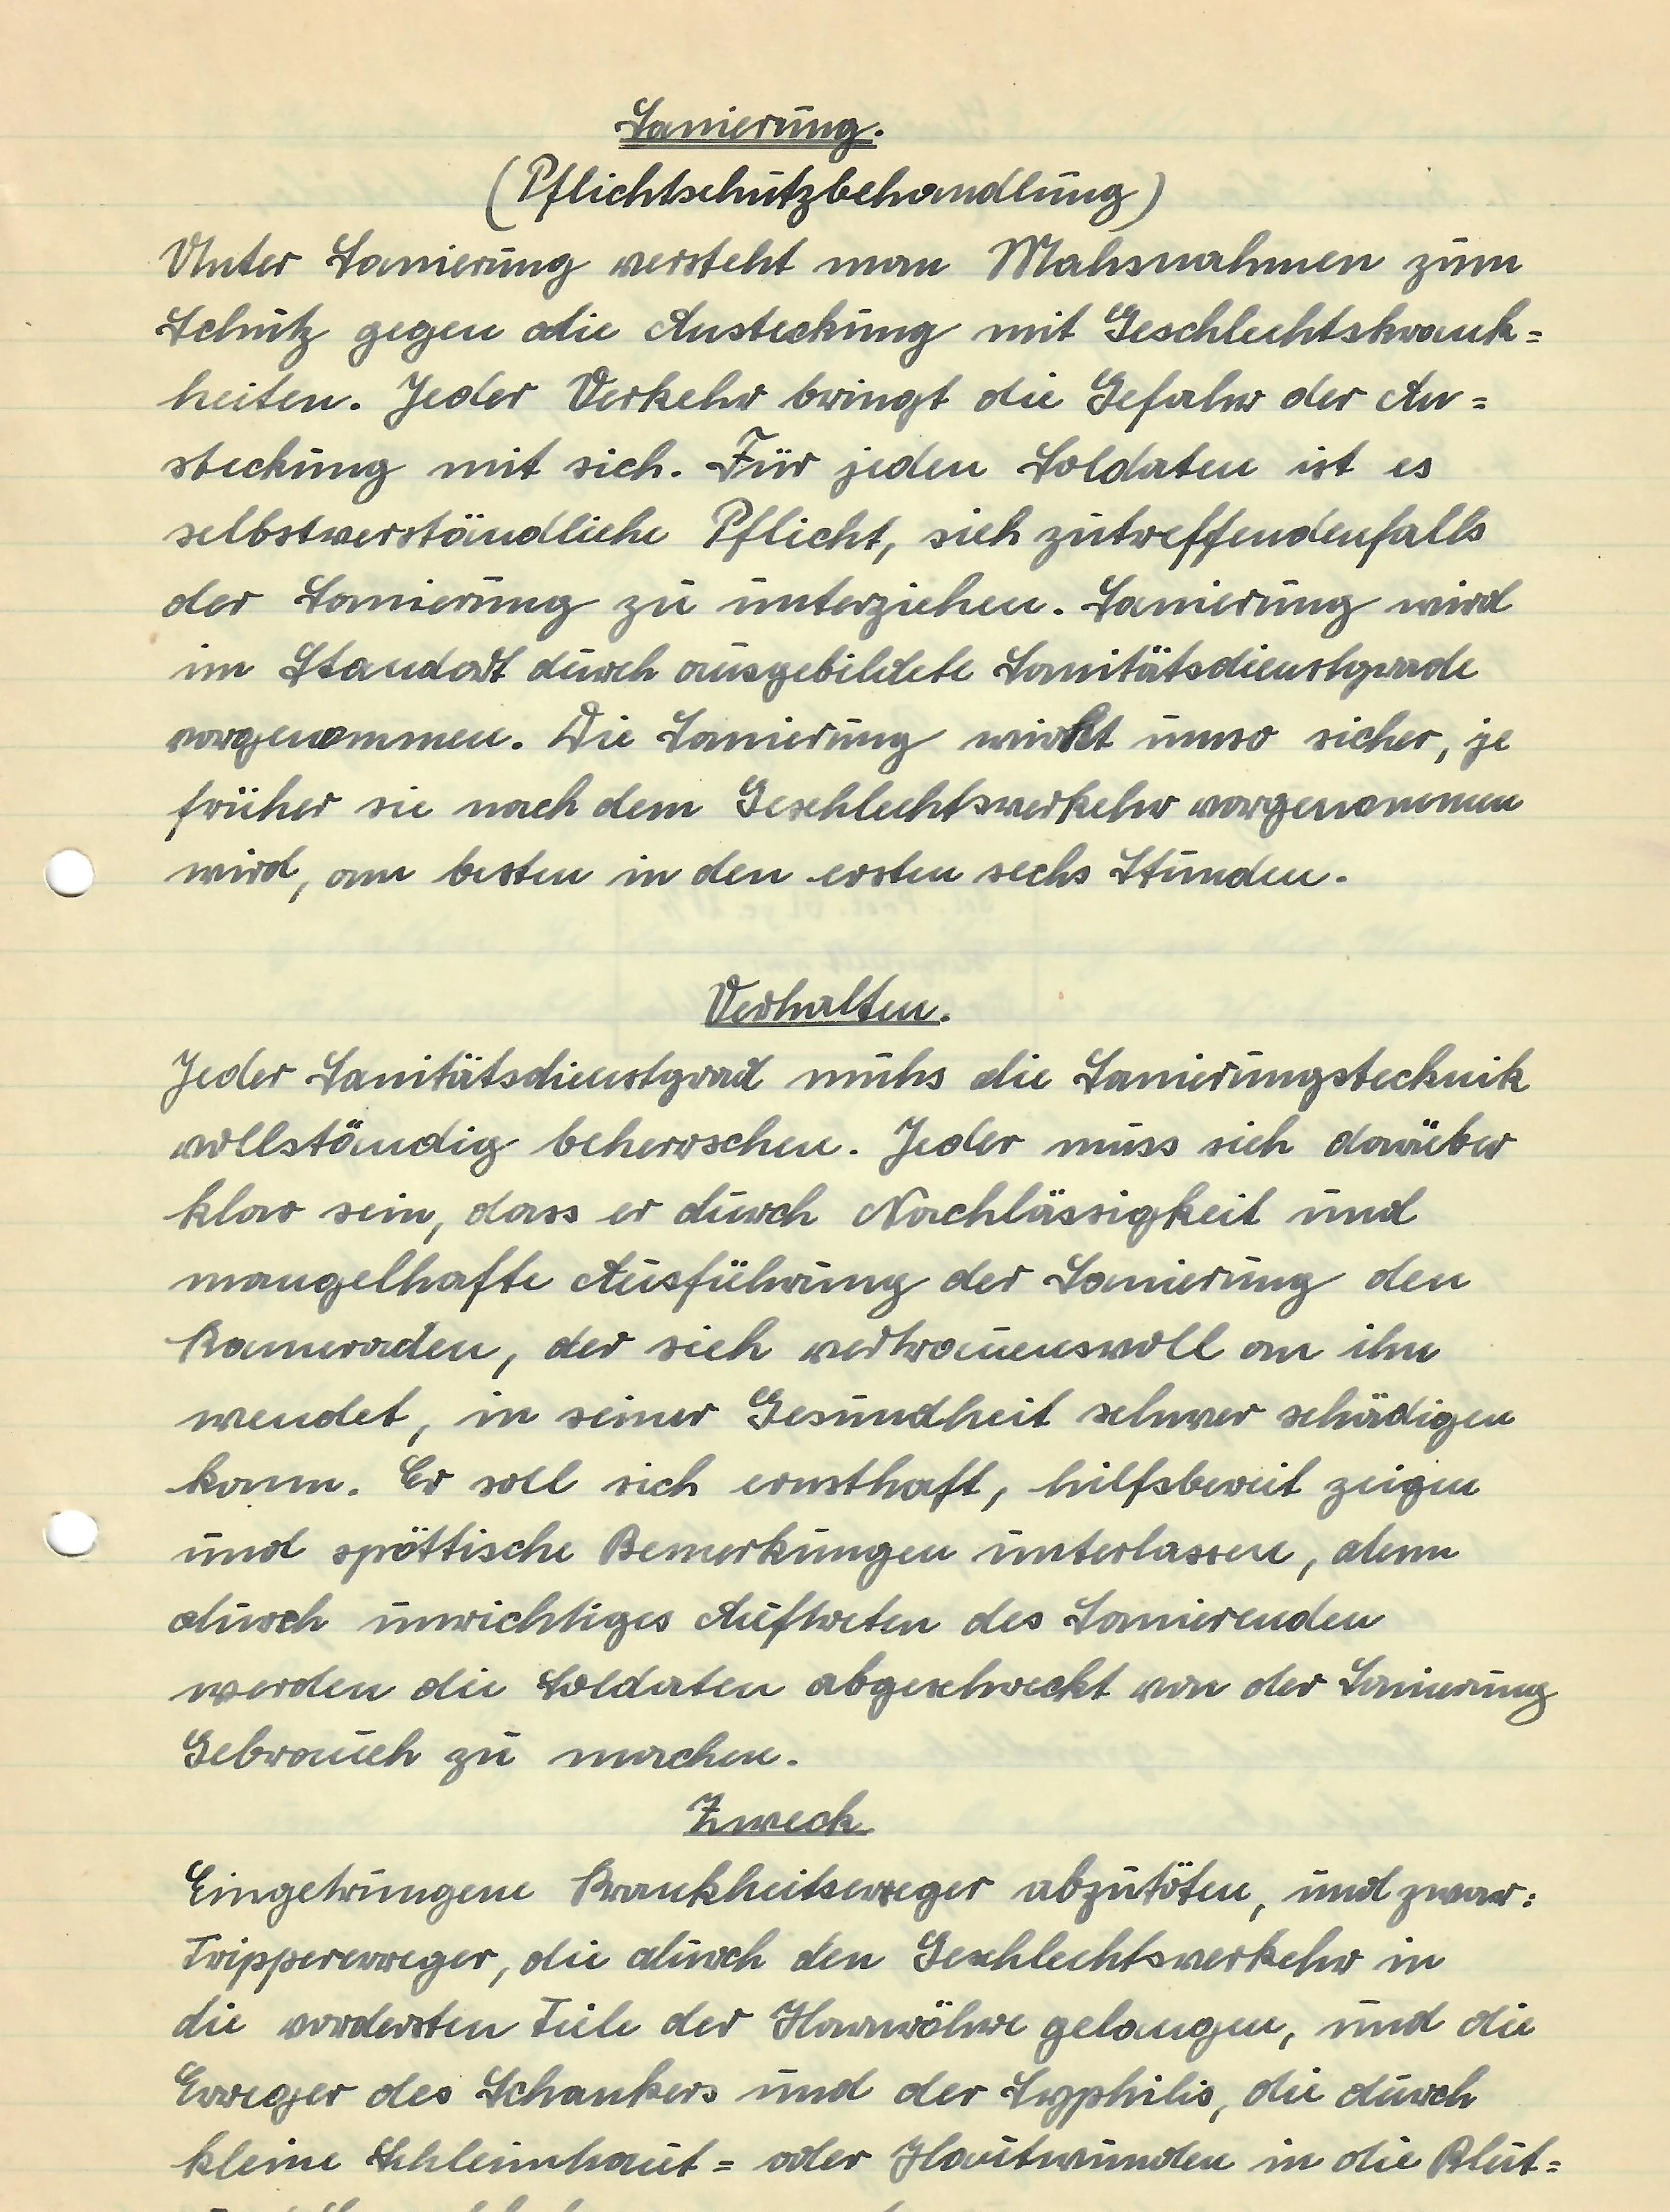 Sanierung.
(Pflichtschutzbehandlung)
Unter Sanierung versteht man Mahsnahmen zum
Schutz gegen die Ansteckung mit Geschlechtskrank=
heiten. Jeder Verkehr bringt die Gefahr der An=
steckung mit sich. Für jeden Soldaten ist es
selbstverständliche Pflicht, sich zutreffendenfalls
der Sanierung zu unterziehen. Sanierung wird
im Standort durch ausgebildete Sanitätsdienstgrade
vorgenommen. Die Sanierung wirkt umso sicher, je
früher sie nach dem Geschlechtsverkehr vorgenommen
wird, am besten in den ersten sechs Stunden.
Verhalten.
Jeder Sanitätsdienstgrad muhs die Sanierungstechnik
vollständig beherrschen. Jeder muss sich darüber
klar sein, dass er durch Nachlässigkeit und
mangelhafte Ausführung der Sanierung den
Kameraden, der sich vertrauensvoll an ihn
wendet, in seiner Gesundheit schwer schädigen
kann. Er soll sich ernsthaft, hilfsbereit zeigen
und spöttische Bemerkungen unterlassen, denn
durch unrichtiges Auftreten des Sanierenden
werden die Soldaten abgeschreckt von der Sanierung
Gebrauch zu machen.
Zweck
Eingetrungene Krankheitserreger abzutöten, und zwar:
Trippererreger, die durch den Geschlechtsverkehr in
die vordersten Teile der Harnröhre gelangen, und die
Erreger des Schankers und der Syphilis, die durch
kleine Schleimhaut= oder Hautwunden in die Blut=